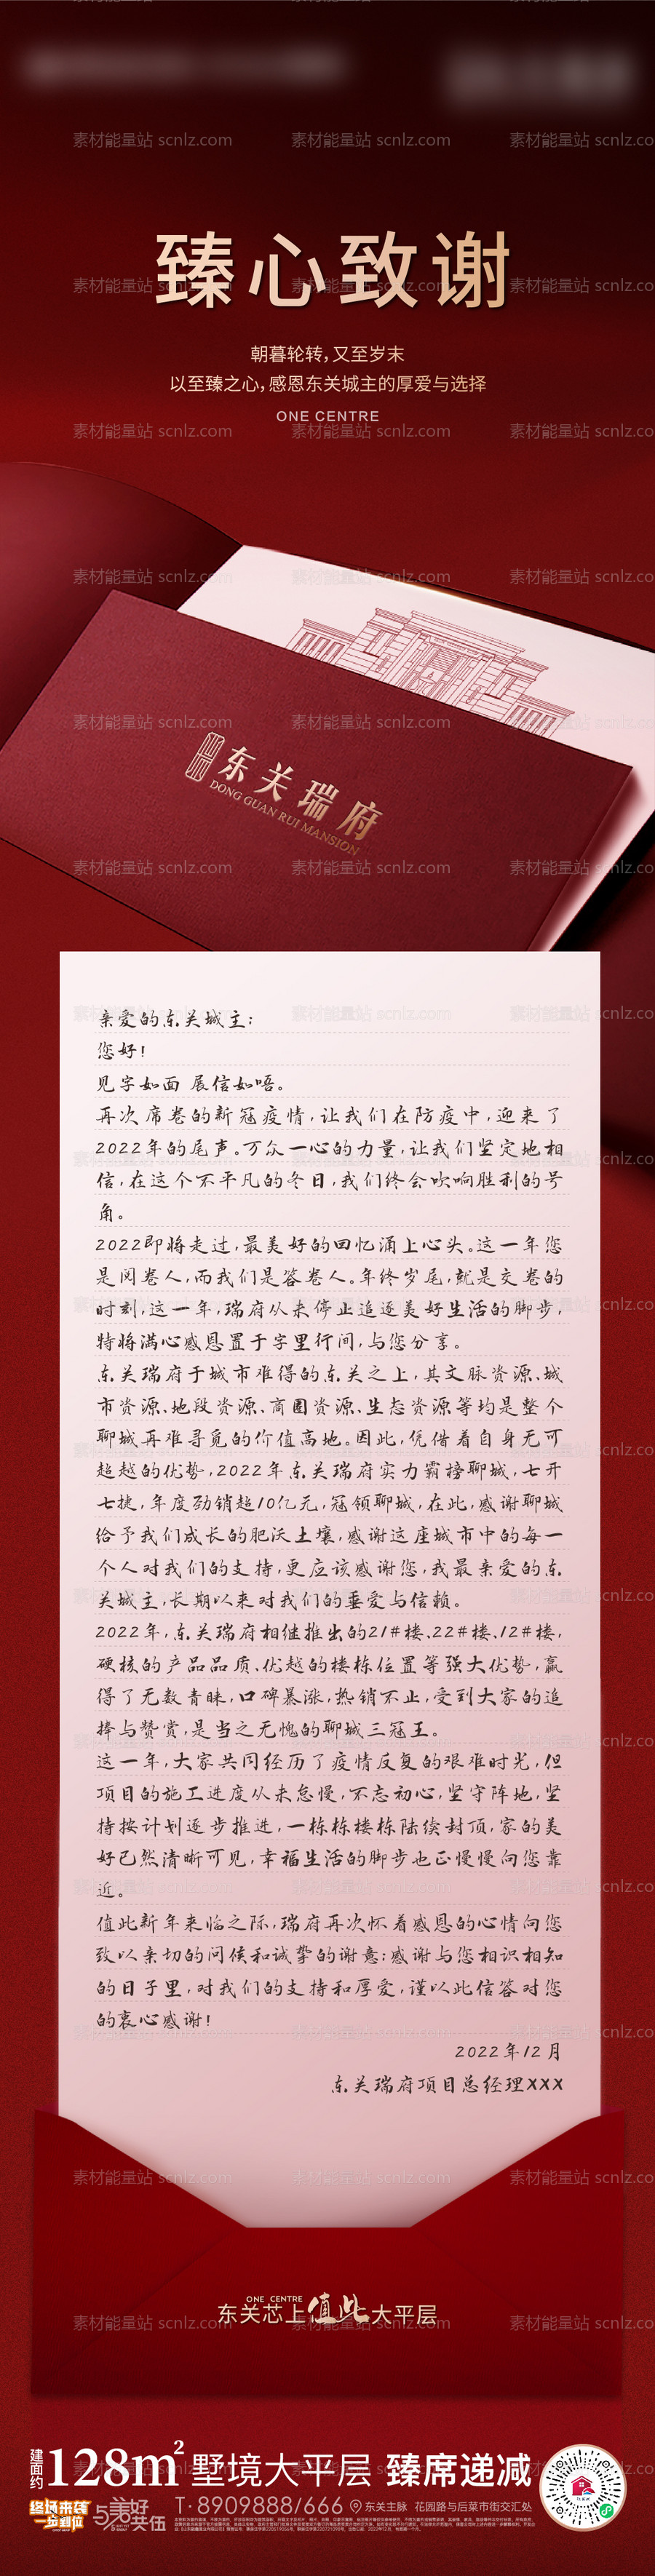 臻心致谢
朝暮轮转,又至岁末
以至臻之心,感恩东关城主的厚爱与选择
ONE CENTRE
东关瑞府
DONG GUAN RUI MANSION
亲爱的东关城主:
您好!
见字如面 展信如唔。
再次席卷的新冠疫情,让我们在防疫中,迎来了
2022年的尾声。万众一心的力量,让我们坚定地相
信,在这个不平凡的冬日,我们终会吹响胜利的号
角。
2022即将走过,最美好的回忆涌上心头。这一年您
是阅卷人,而我们是答卷人。年终岁尾,就是交卷的
时刻,这一年,瑞府从未停止追逐美好生活的脚步,
特将满心感恩置于字里行间,与您分享。
东关瑞府于城市难得的东关之上,其文脉资源、城
市资源、地段资源、商圈资源、生态资源等均是整个
聊城再难寻觅的价值高地。因此,凭借着自身无可
超越的优势,2022年东关瑞府实力霸榜聊城,七开
七捷,年度劲销超10亿元,冠领聊城,在此,感谢聊城
给予我们成长的肥沃土壤,感谢这座城市中的每一
个人对我们的支持,更应该感谢您,我最亲爱的东
关城主,长期以来对我们的垂爱与信赖。
2022年,东关瑞府相继推出的21#楼、22#楼、12#楼,
硬核的产品品质、优越的楼栋位置等强大优势,赢
得了无数青睐,口碑暴涨,热销不止,受到大家的追
捧与赞赏,是当之无愧的聊城三冠王。
这一年,大家共同经历了疫情反复的艰难时光,但
项目的施工进度从未怠慢,不忘初心,坚守阵地,坚
持按计划逐步推进,一栋栋楼栋陆续封顶,家的美
好已然清晰可见,幸福生活的脚步也正慢慢向您靠
近。
值此新年来临之际,瑞府再次怀着感恩的心情向您
致以亲切的问候和诚挚的谢意:感谢与您相识相知
的日子里,对我们的支持和厚爱,谨以此信答对您
的衷心感谢!
2022年12月
东关瑞府项目总经理XXX
ONE CENTRE
东关芯上值此大平层
建面约128m²墅境大平层 臻席递减
终场来袭
一步到位
T·8909888/666 东关主脉 花园路与后菜市街交汇处
素材能量站 scnlz.com